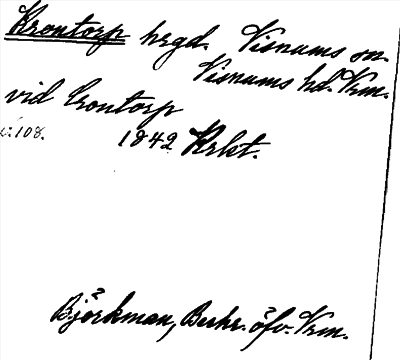 Krontorp hrgd. Visnums sn.
Visnums hd. Vrm.
vid Crontorp
:108.
1842 Krkt.
Björkman, Beskr. öfv. Vrm.